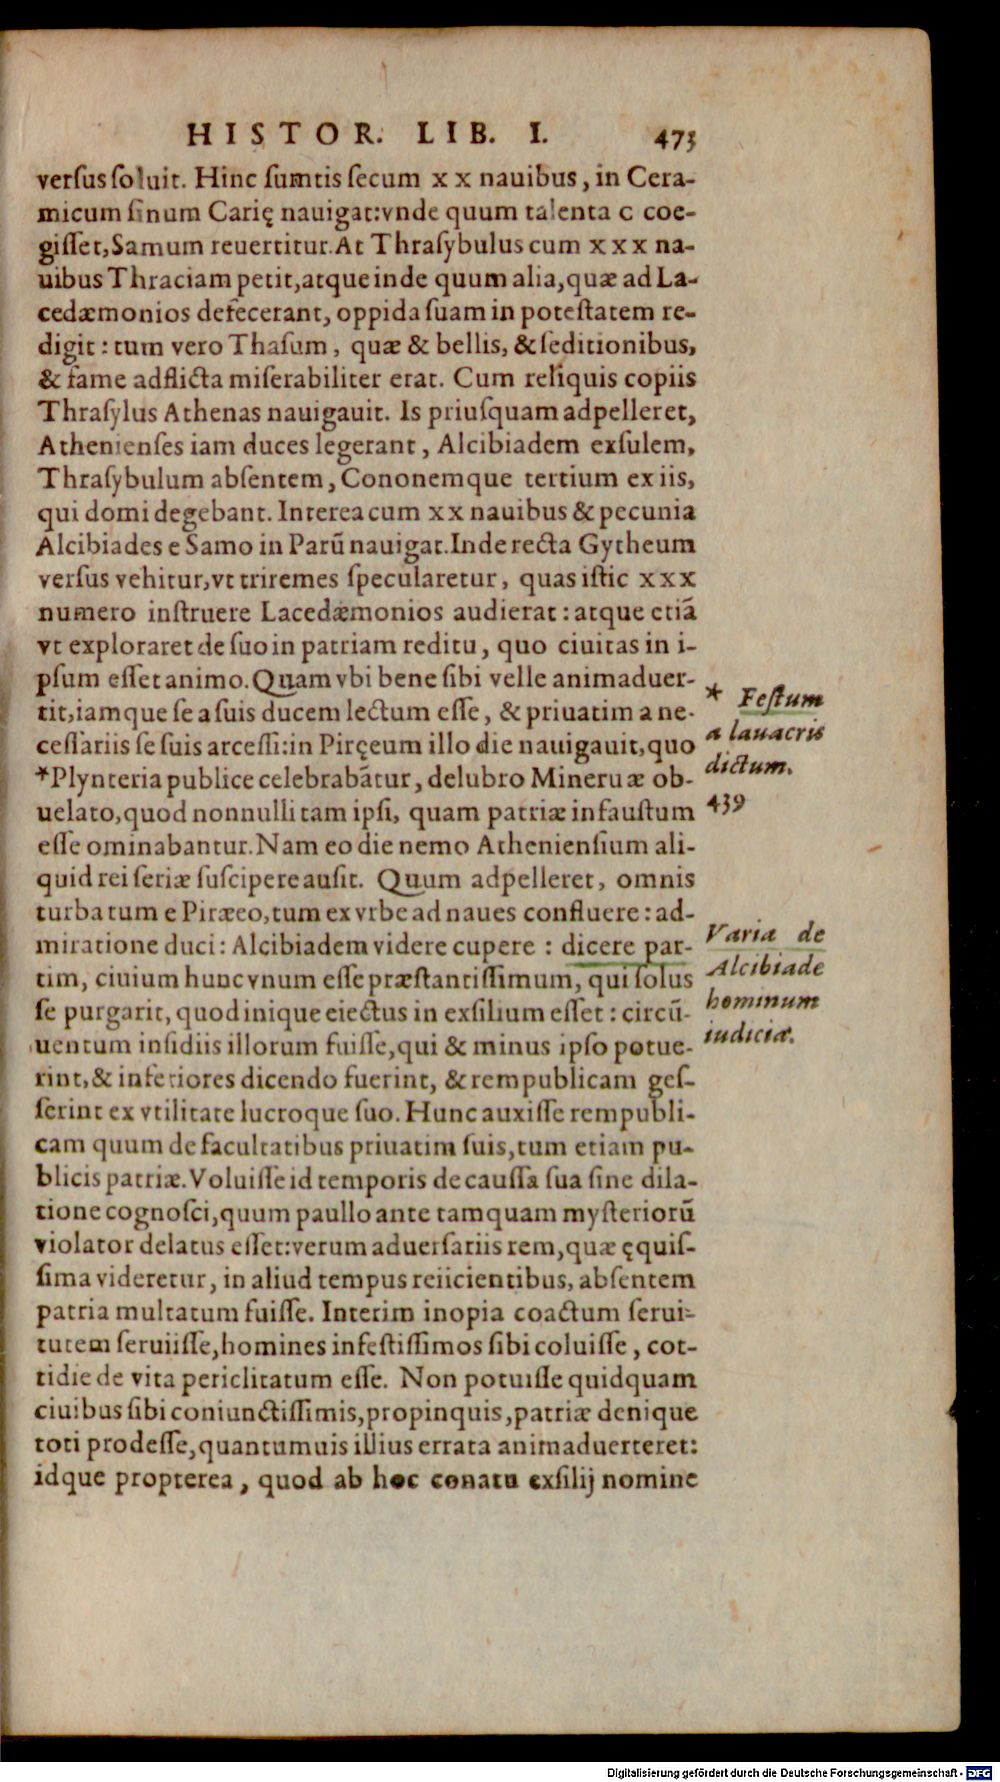 HISTOR. LIB. I. 473
verſus ſoluit. Hinc ſumtis ſecum x x nauibus, in Cera-
micum ſinum Carię nauigat: vnde quum talenta c coe-
giſſet, Samum reuertitur. At Thraſybulus cum x x x na-
uibus Thraciam petit, atque inde quum alia, quæ ad La-
cedæmonios defecerant, oppida ſuam in poteſtatem re-
digit: tum vero Thaſum, quæ & bellis, & ſeditionibus,
& fame adflicta miſerabiliter erat. Cum reliquis copiis
Thraſylus Athenas nauigauit. Is priuſquam adpelleret,
Athenienſes iam duces legerant, Alcibiadem exſulem,
Thraſybulum abſentem, Cononemque tertium ex iis,
qui domi degebant. Interea cum x x nauibus & pecunia
Alcibiades e Samo in Parũ nauigat. Inde recta Gytheum
verſus vehitur, vt triremes ſpecularetur, quas iſtic x x x
numero inſtruere Lacedæmonios audierat: atque etiã
vt exploraret de ſuo in patriam reditu, quo ciuitas in i-
pſum eſſet animo. Quam vbi bene ſibi velle animaduer-
tit, iamque ſe a ſuis ducem lectum eſſe, & priuatim a ne-
ceſſariis ſe ſuis arceſſi: in Piręeum illo die nauigauit, quo
*Plynteria publice celebrabãtur, delubro Mineruæ ob-
uelato, quod nonnulli tam ipſi, quam patriæ infauſtum
eſſe ominabantur. Nam eo die nemo Athenienſium ali-
quid rei ſeriæ ſuſcipere auſit. Quum adpelleret, omnis
turba tum e Piræeo, tum ex vrbe ad naues confluere: ad-
miratione duci: Alcibiadem videre cupere: dicere par-
tim, ciuium hunc vnum eſſe præſtantiſſimum, qui ſolus
ſe purgarit, quod inique eiectus in exſilium eſſet: circũ-
uentum inſidiis illorum fuiſſe, qui & minus ipſo potue-
rint, & inferiores dicendo fuerint, & rempublicam geſ-
ſerint ex vtilitate lucroque ſuo. Hunc auxiſſe rempubli-
cam quum de facultatibus priuatim ſuis, tum etiam pu-
blicis patriæ. Voluiſſe id temporis de cauſſa ſua ſine dila-
tione cognoſci, quum paullo ante tamquam myſteriorũ
violator delatus eſſet: verum aduerſariis rem, quæ ęquiſ-
ſima videretur, in aliud tempus reiicientibus, abſentem
patria multatum fuiſſe. Interim inopia coactum ſerui-
tutem ſeruiiſſe, homines infeſtiſſimos ſibi coluiſſe, cot-
tidie de vita periclitatum eſſe. Non potuiſſe quidquam
ciuibus ſibi coniunctiſſimis, propinquis, patriæ denique
toti prodeſſe, quantumuis illius errata animaduerteret:
idque propterea, quod ab hoc conatu exſilij nomine
* Feſtum
a lauacris
dictum.
439
Varia de
Alcibiade
hominum
iudicia.
Digitalisierung gefördert durch die Deutsche Forschungsgemeinschaft - DFG